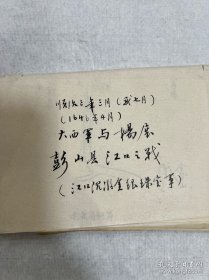 顺治三年三月(或七月)
(1646年4月)
大西军与杨展
彭山县江口之战
(江口沉没金银珠宝事)